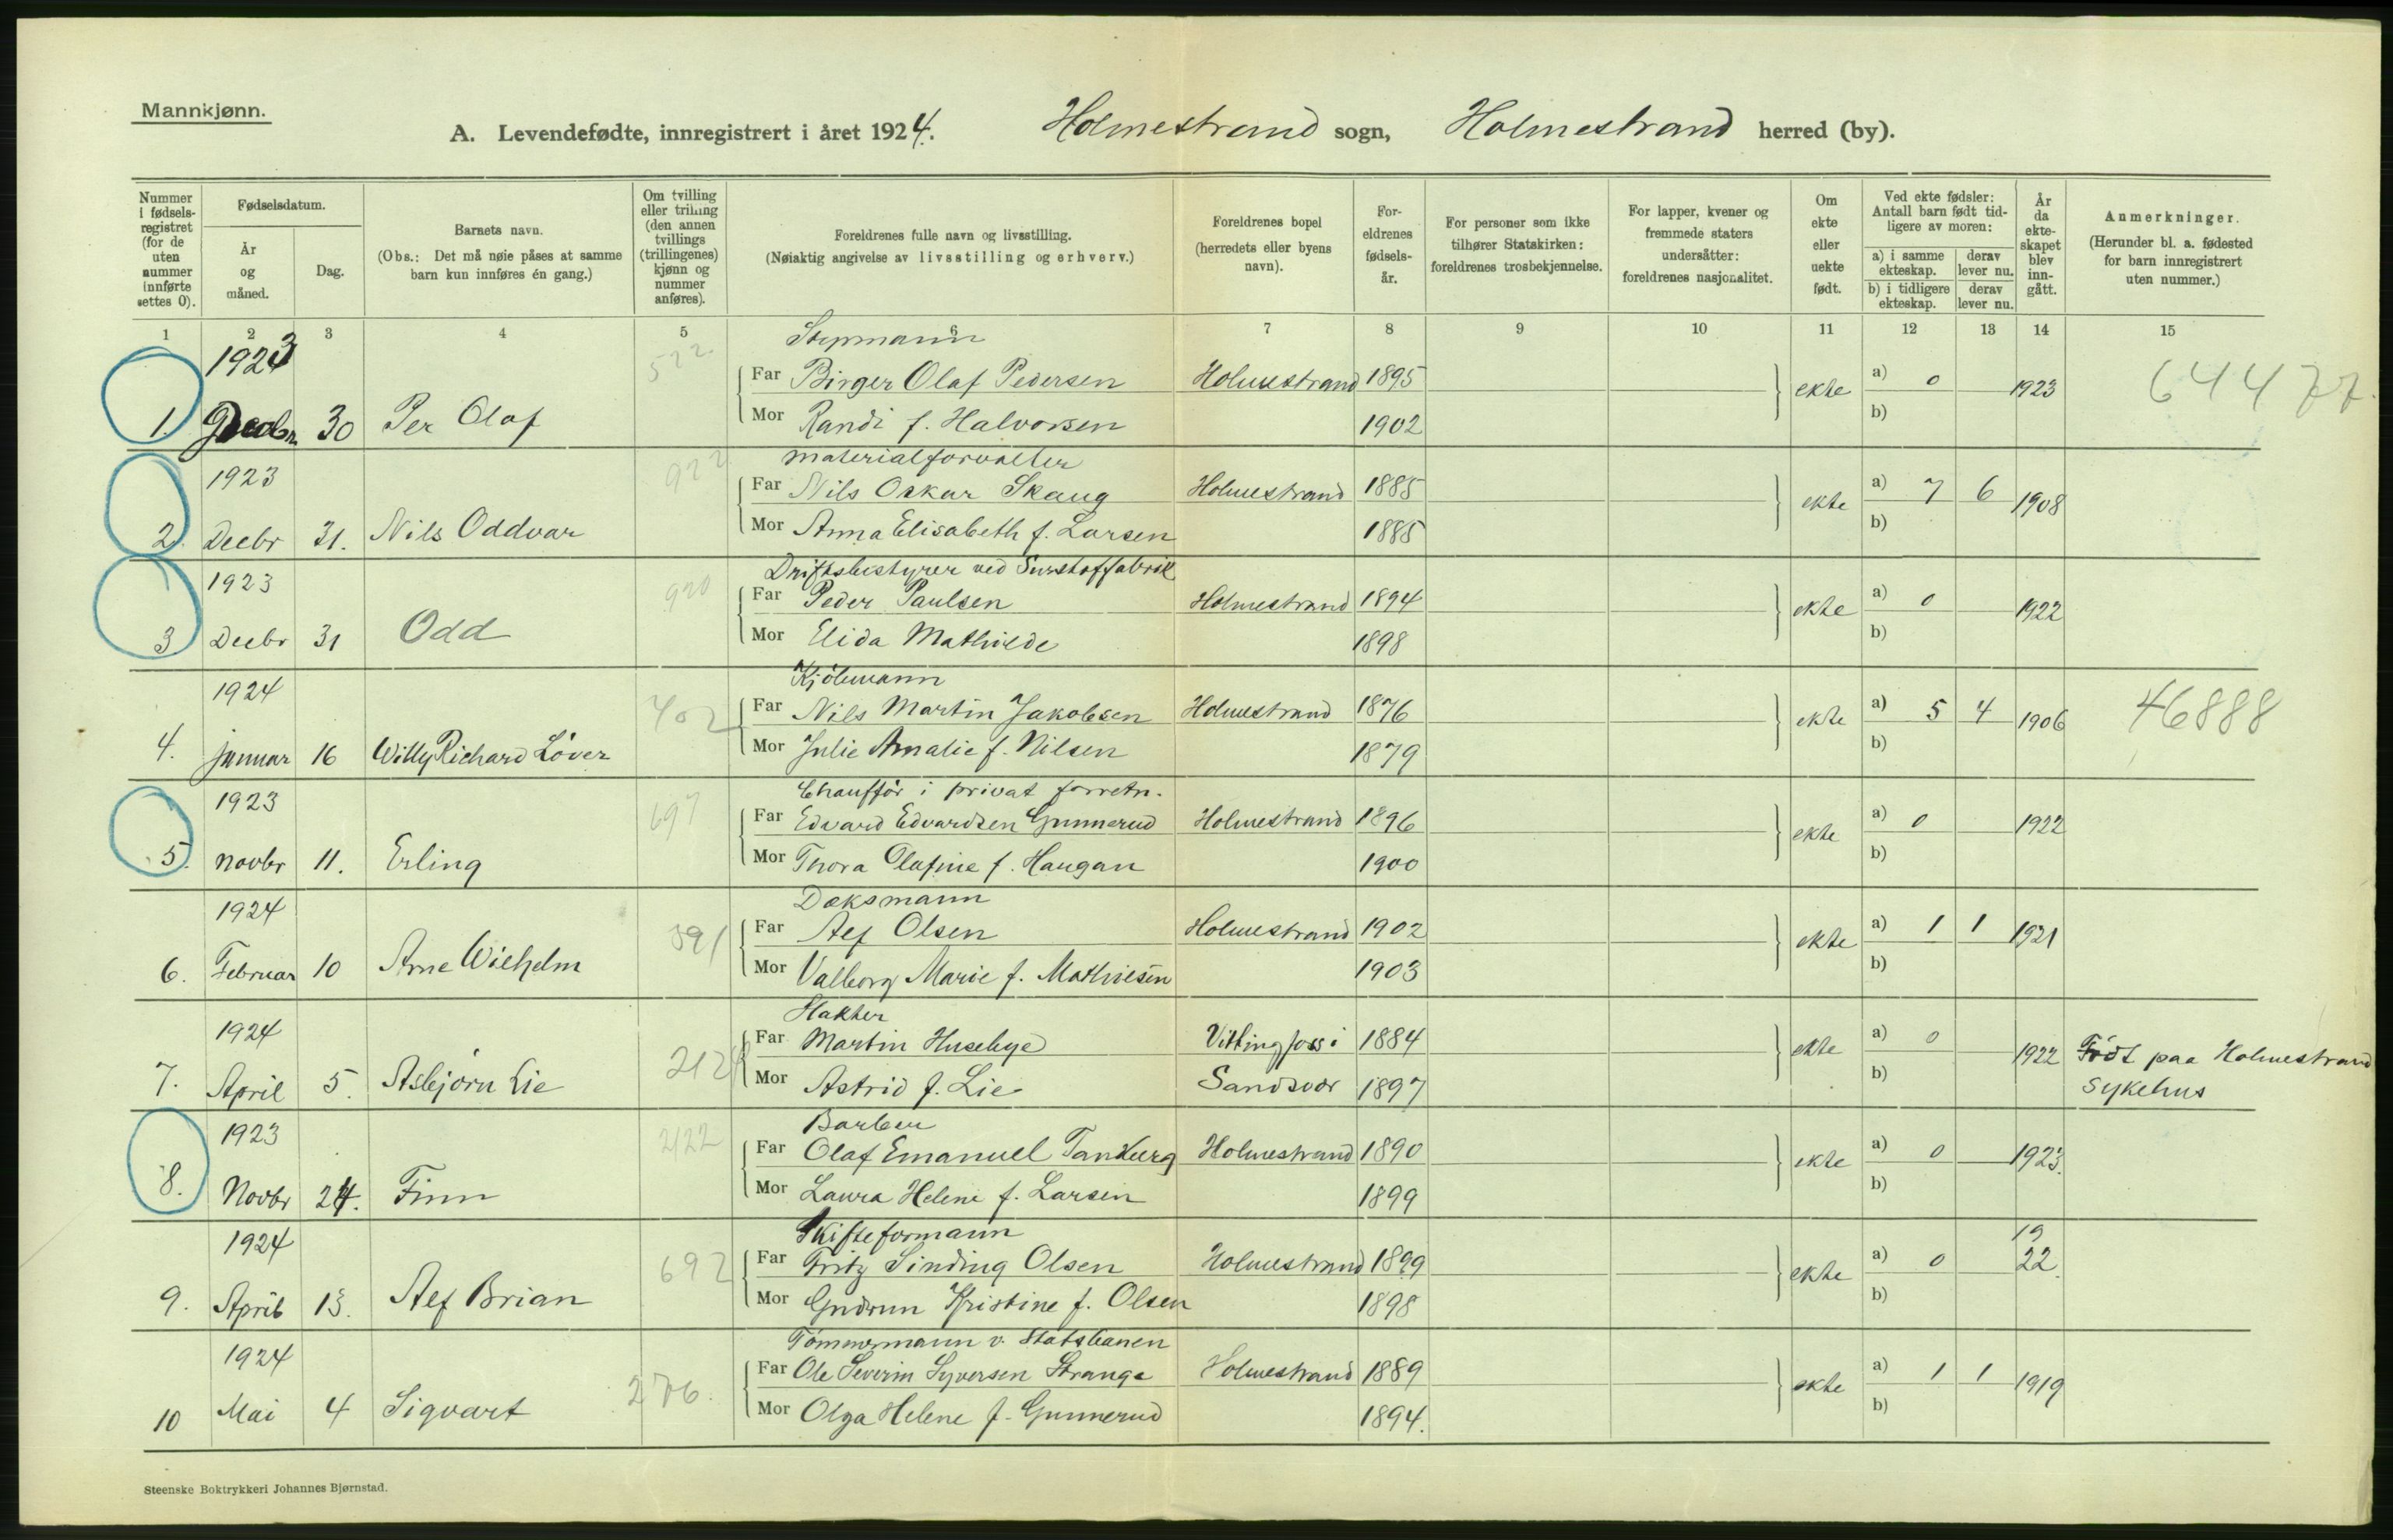 Mannkjønn.
A. Levendefødte, innregistrert i året 1924. Holmestrand sogn, Holmestrand herred (by).
Nummer i fødsels-registret (for de uten nummer innførte settes 0).
Fødselsdatum.
År og måned.
Dag.
Barnets navn.
(Obs.: Det må nøie påses at samme barn kun innføres én gang.)
Om tvilling eller trilling (den annen tvillings (trillingenes) kjønn og nummer anføres).
Foreldrenes fulle navn og livsstilling.
(Nøiaktig angivelse av livsstilling og erhverv.)
Foreldrenes bopel (herredets eller byens navn).
For-eldrenes fødsels-år.
For personer som ikke tilhører Statskirken: foreldrenes trosbekjennelse.
For lapper, kvener og fremmede staters undersåtter: foreldrenes nasjonalitet.
Om ekte eller uekte født.
Ved ekte fødsler: Antall barn født tid-ligere av moren:
a) i samme ekteskap. derav lever nu.
b) i tidligere ekteskap. derav lever nu.
År da ekte-skapet blev inn-gått.
Anmerkninger.
(Herunder bl. a. fødested for barn innregistrert uten nummer.)
1 2 3 4 5 6 7 8 9 10 11 12 13 14 15
1923 522 Stuymann
Far Birger Olaf Pedersen Holmestrand 1895 ekte a) 0 1923 64477.
1. Decbr. 30 Per Olaf Mor Randi f. Halvorsen 1902 b)
1923 922 Materialforvalter
Far Nils Oskar Skaug Holmestrand 1885 ekte a) 7 6 1908
2. Decbr 31. Nils Oddvar Mor Anna Elisabeth f. Larsen 1885 b)
1923 920 Driftsbestyrer ved Surstoffabrik
Far Peder Paulsen Holmestrand 1894 ekte a) 0 1922
3 Decbr 31 Odd Mor Elida Mathilde 1898 b)
1924 402 Kjöbmann
Far Nils Martin Jakobsen Holmestrand 1876 ekte a) 5 4 1906 46888
4. januar 16 Willy Richard Löver Mor Julie Amalie f. Nilsen 1879 b)
1923 697 Chaufför i privat forretn.
Far Edvard Edvardsen Gunnerud Holmestrand 1896 ekte a) 0 1922
5. Novbr 11. Erling Mor Thora Olafine f. Haugan 1900 b)
1924 591 Dæksmann
Far Alf Olsen Holmestrand 1902 ekte a) 1 1 1921
6. Februar 10 Arne Wilhelm Mor Valborg Marie f. Mathisen 1903 b)
1924 212 Slakter
Far Martin Husebye Vittingfoss i 1884 ekte a) 0 1922 Födt paa Holmestrand
7. April 5. Asbjörn Lie Mor Astrid f. Lie Sandsvær 1897 b) Sykehus
1923 2122 Barber
Far Olaf Emanuel Tandberg Holmestrand 1890 ekte a) 0 1923.
8. Novbr 24. Finn Mor Laura Helene f. Larsen 1899 b)
1924 692 Skifteformann 19
Far Fritz Sinding Olsen Holmestrand 1899 ekte a) 0 22.
9. April 13. Alf Brian Mor Gudrun Kristine f. Olsen 1898 b)
1924 276. Tömmermann v. Statsbanen
Far Ole Severin Syversen Strange Holmestrand 1889 ekte a) 1 1 1919
10 Mai 4 Sigvart Mor Olga Helene f. Gunnerud 1894. b)
Steenske Boktrykkeri Johannes Bjørnstad.